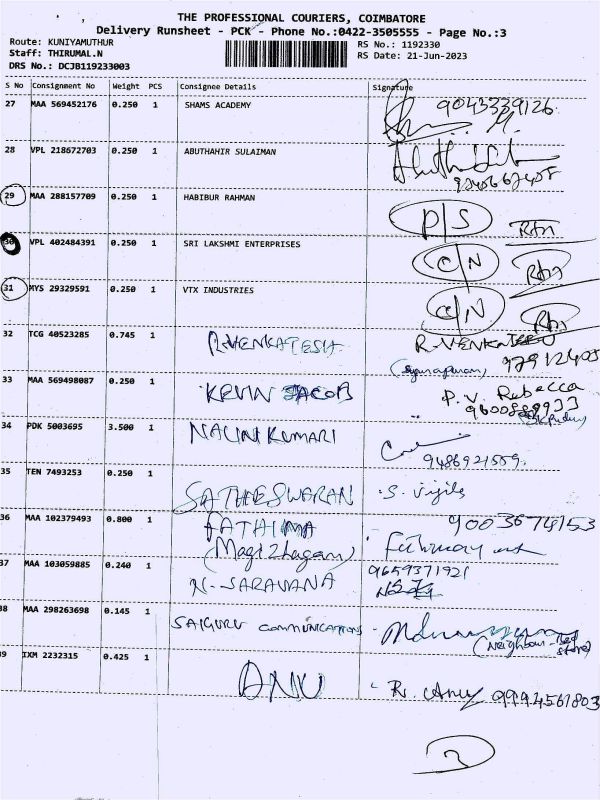 THE PROFESSIONAL COURIERS, COIMBATORE
Delivery Runsheet - PCK - Phone No.:0422-3505555 - Page No.:3
Route: KUNIYAMUTHUR
RS No.: 1192330
Staff: THIRUMAL.N
RS Date: 21-Jun-2023
DRS No.: DCJB119233003
S No Consignment No Weight PCS Consignee Details Signature
27 MAA 569452176 0.250 1 SHAMS ACADEMY 9043339126
28 VPL 218672703 0.250 1 ABUTHAHIR SULAIMAN
29 MAA 288157709 0.250 1 HABIBUR RAHMAN D/S Rtn
30 VPL 402484391 0.250 1 SRI LAKSHMI ENTERPRISES C/N Rtn
31 MYS 29329591 0.250 1 VTX INDUSTRIES C/N Rtn
32 TCG 40523285 0.745 1 R.VENKATESH R.VENKATESH
33 MAA 569498087 0.250 1 KEVIN JACOB P. V. Rebecca
34 PDK 5003695 3.500 1 NALINI KUMARI
9486921559.
35 TEN 7493253 0.250 1 SATHEESWARAN S.
36 MAA 102379493 0.800 1 FATHIMA 9003674153
37 MAA 103059885 0.240 1 N-SARAVANA 9659371921
38 MAA 298263698 0.145 1 SAIGURU COMMUNICATIONS
39 IXM 2232315 0.425 1 ANU R. Anu 9994561803